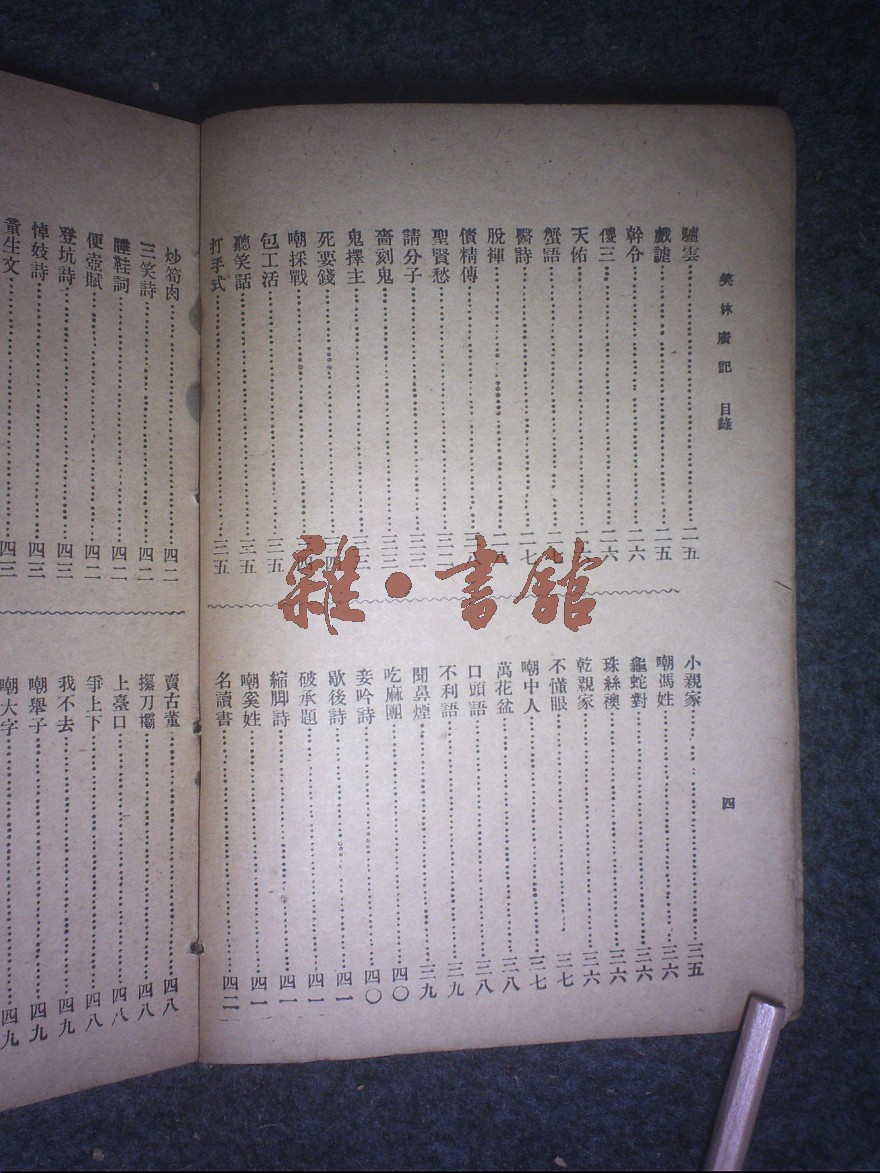 笑林廣記 目錄
四
驢雲 二五
戲謔 二五
幹令 二六
儍三 二六
天佑
蟹語
醫詩 二七
脫褌
債精傳
聖賢愁
請分子
嗇刻鬼
鬼擇主
死要錢
嘲採戰
包工活 三五
聽笑話 三五
打手式 三五
小親家 三五
嘲馮姓 三六
龜蛇對 三六
珠絲襖 三六
乾親家 三六
不懂眼 三七
嘲中人 三七
萬花盆 三八
口頭語 三八
不利語 三九
聞鼻煙 三九
吃麻團 四〇
妾吟詩 四〇
歇後詩 四一
破承題 四一
縮脚詩 四一
嘲奚姓 四一
名讀書 四二
炒筍肉 四二
三笑詩 四二
睡鞋詞 四二
便壺賦 四二
登坑詩 四三
悼妓詩 四三
童生文 四三
賣古董 四八
攥刀欛 四八
上臺口 四八
爭上下 四八
我不去 四九
嘲舉子 四九
嘲大字 四九
雜·書館